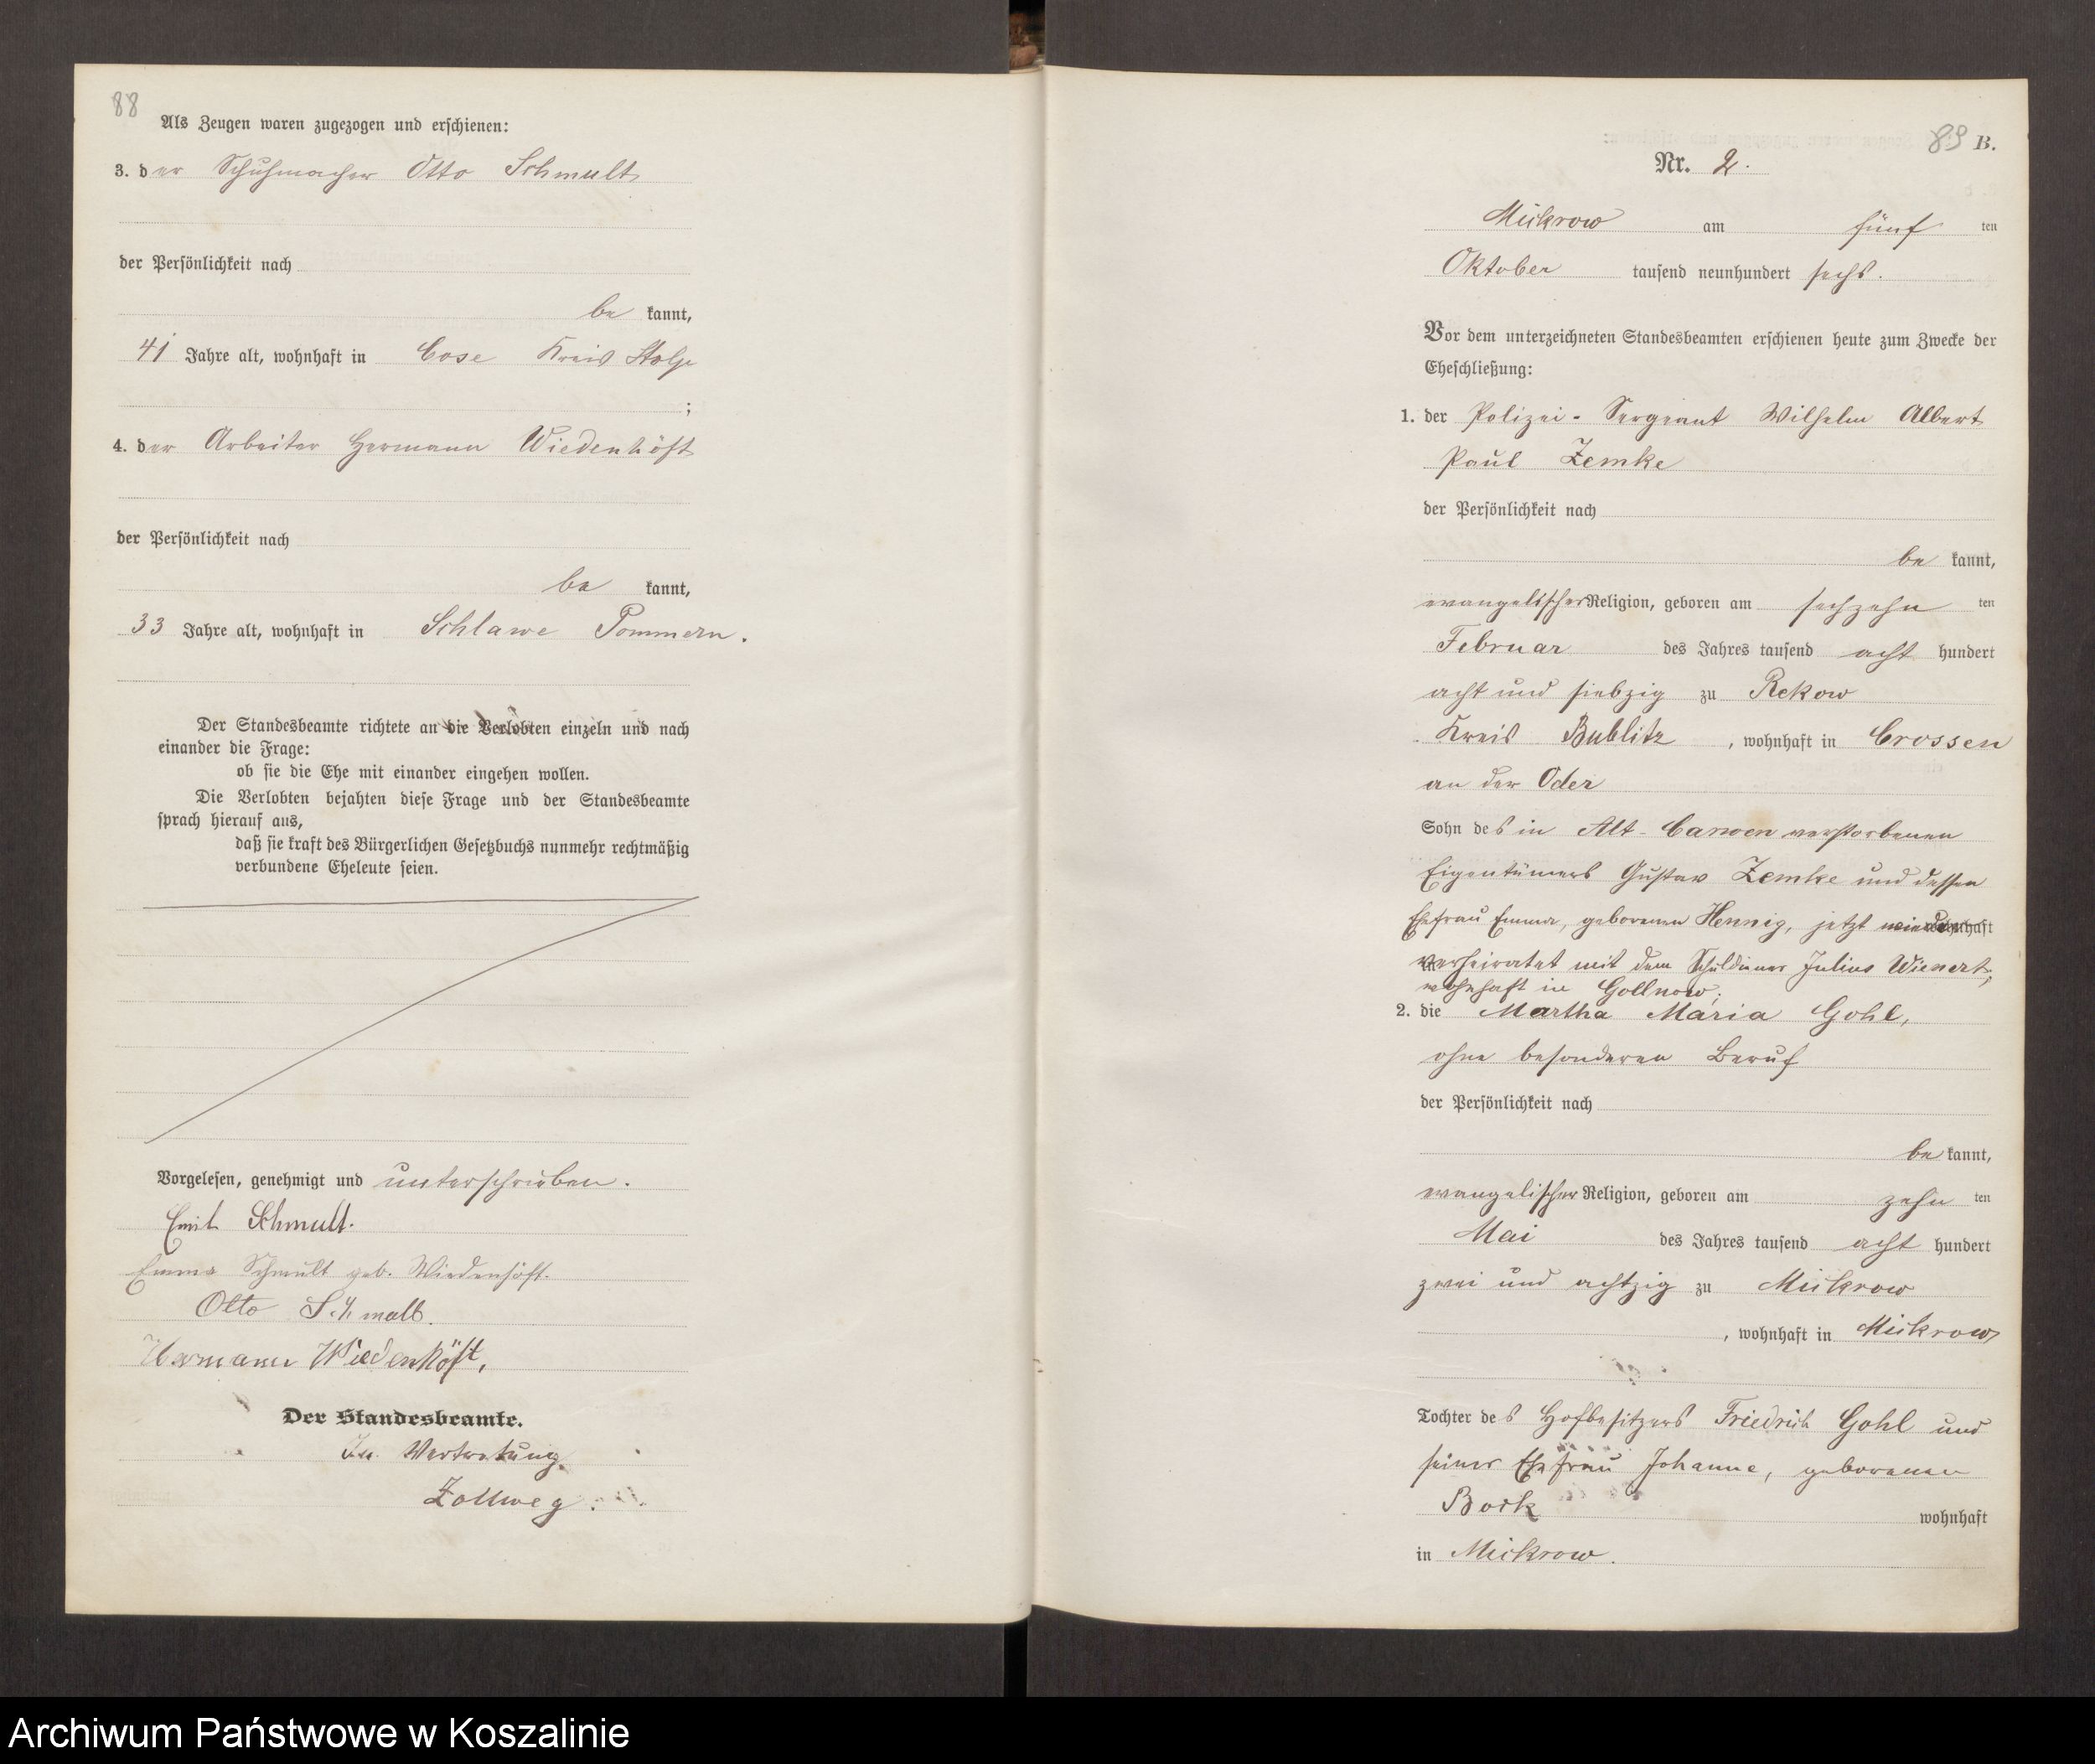 88
Als Zeugen waren zugezogen und erschienen:
3. der Schuhmacher Otto Schmult
der Persönlichkeit nach
be kannt,
41 Jahre alt, wohnhaft in Cose Kreis Stolp
;
4. der Arbeiter Hermann Wiedenhöft
der Persönlichkeit nach
be kannt,
33 Jahre alt, wohnhaft in Schlawe Pommern.
Der Standesbeamte richtete an die Verlobten einzeln und nach
einander die Frage:
ob sie die Ehe mit einander eingehen wollen.
Die Verlobten bejahten diese Frage und der Standesbeamte
sprach hierauf aus,
daß sie kraft des Bürgerlichen Gesetzbuchs nunmehr rechtmäßig
verbundene Eheleute seien.
Vorgelesen, genehmigt und unterschrieben.
Emil Schmult.
Emma Schmult geb. Wiedenhöft.
Otto Schmalt.
Hermann Wiedenhöft,
Der Standesbeamte.
In Vertretung
Zollweg.
89 B.
Nr. 2.
Mickrow am fünf ten
Oktober tausend neunhundert sechs.
Vor dem unterzeichneten Standesbeamten erschienen heute zum Zwecke der
Eheschließung:
1. der Polizei-Sergeant Wilhelm Albert
Paul Zemke
der Persönlichkeit nach
be kannt,
evangelischer Religion, geboren am sechzehn ten
Februar des Jahres tausend acht hundert
acht und siebzig zu Rekow
Kreis Bublitz, wohnhaft in Crossen
an der Oder
Sohn des in Alt-Carwen verstorbenen
Eigentümers Gustav Zemke und dessen
Ehefrau Emma, geborenen Hennig, jetzt wieder wohnhaft
in verheiratet mit dem Schuldiener Julius Wienert,
wohnhaft in Gollnow;
2. die Martha Maria Gohl,
ohne besonderen Beruf
der Persönlichkeit nach
be kannt,
evangelischer Religion, geboren am zehn ten
Mai des Jahres tausend acht hundert
zwei und achtzig zu Mickrow
, wohnhaft in Mickrow
Tochter des Hofbesitzers Friedrich Gohl und
seiner Ehefrau Johanne, geborenen
Bork wohnhaft
in Mickrow.
Archiwum Państwowe w Koszalinie